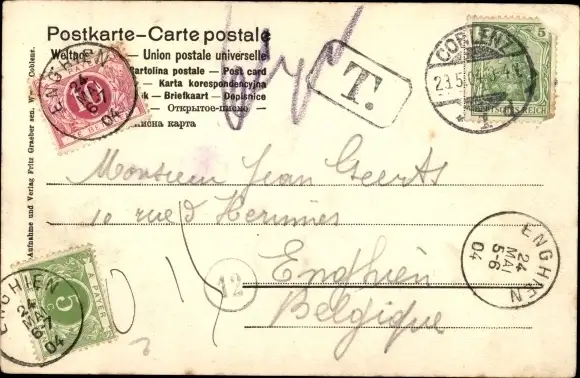 Postkarte–Carte postale
Weltpost – Union postale universelle
Cartolina postale – Post card
Karta korespondencyjna
– Briefkaart – Dopisnice
Открытое письмо
Aufnahme und Verlag Fritz Graeber sen. Coblenz.
T.
5
COBLENZ
DEUTSCHES REICH
ENGHIEN
04
Monsieur Jean Geerts
10 rue d'Herinnes
Enghien
Belgique
12
ENGHIEN
24
MAI
5-6
04
ENGHIEN
MAI
04
A PAYER
5